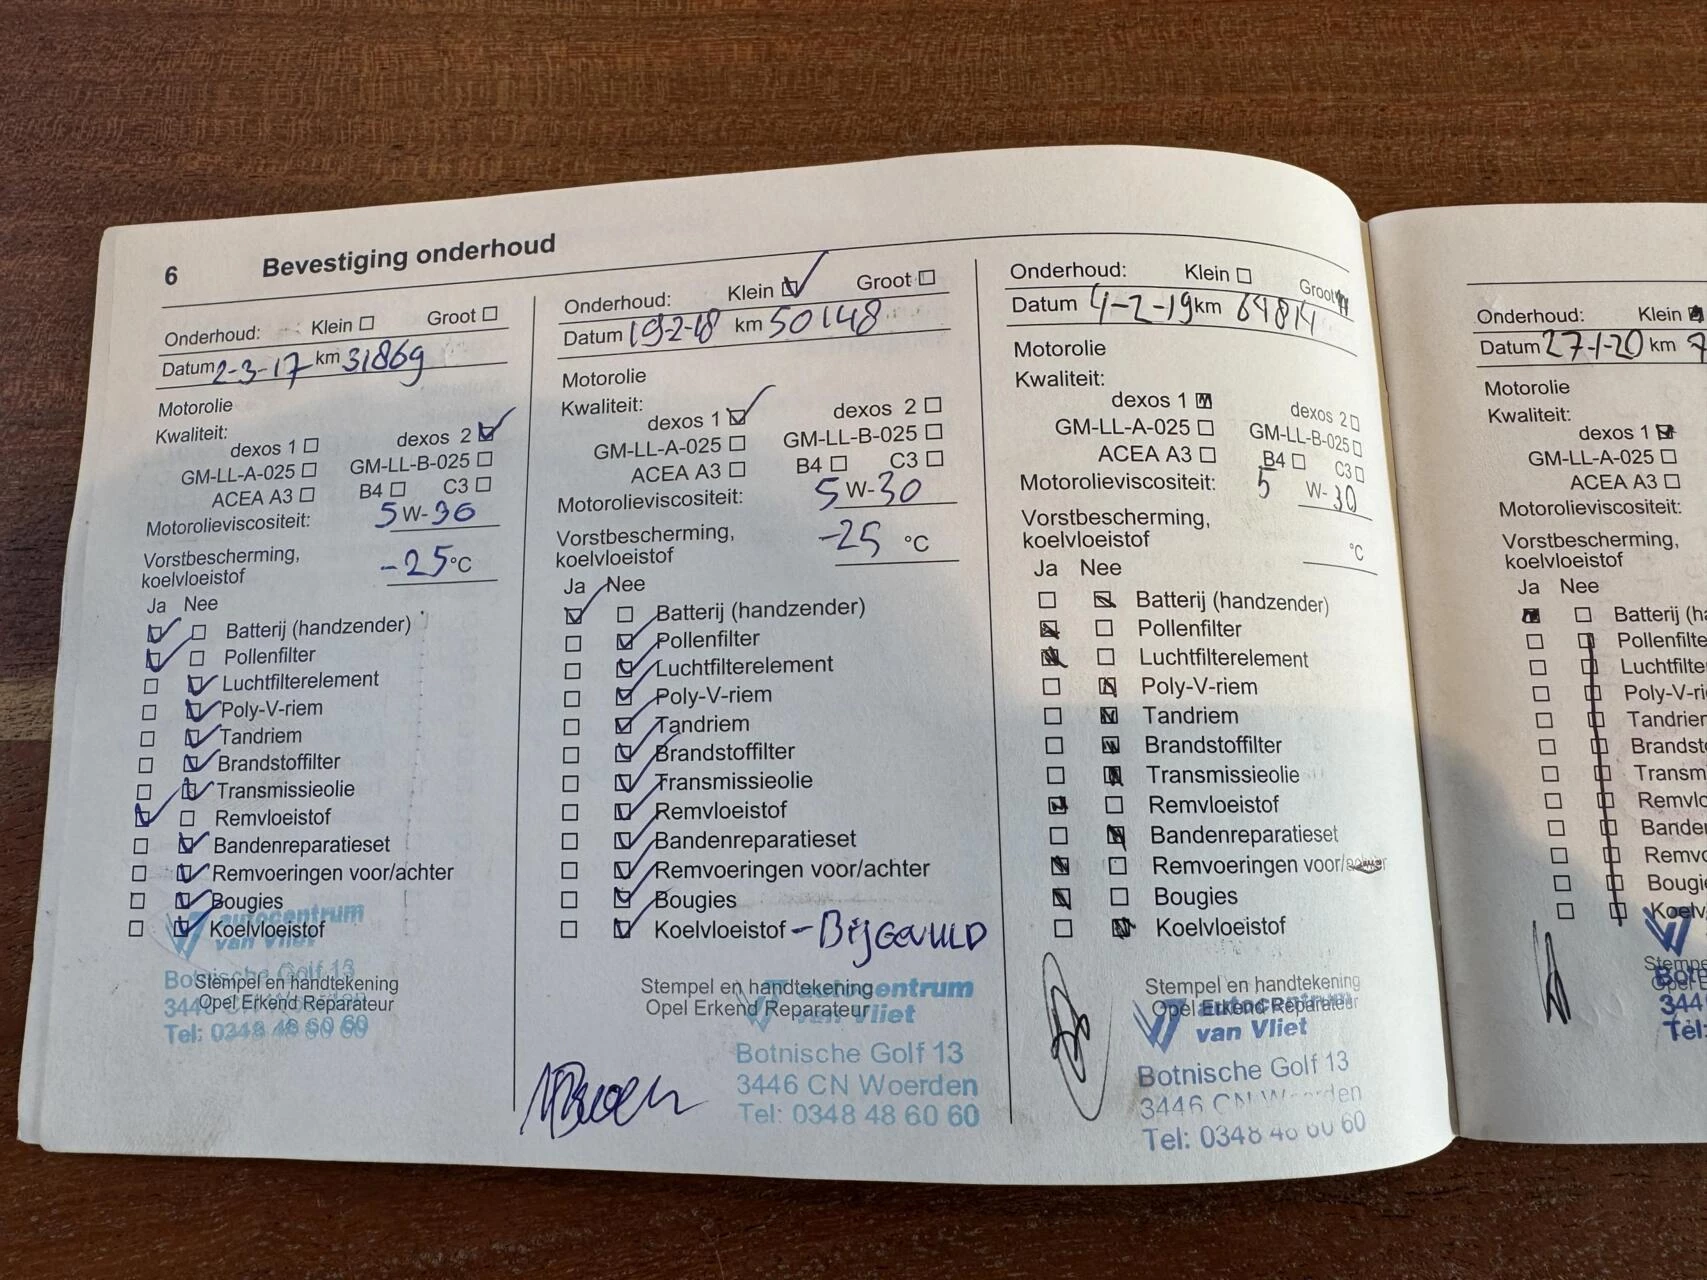 6 Bevestiging onderhoud
Onderhoud: Klein Groot
Datum 2-3-17 km 31869
Motorolie
Kwaliteit:
dexos 1 dexos 2
GM-LL-A-025 GM-LL-B-025
ACEA A3 B4 C3
Motorolieviscositeit: 5 W-30
Vorstbescherming,
koelvloeistof -25 °C
Ja Nee
Batterij (handzender)
Pollenfilter
Luchtfilterelement
Poly-V-riem
Tandriem
Brandstoffilter
Transmissieolie
Remvloeistof
Bandenreparatieset
Remvoeringen voor/achter
Bougies
Koelvloeistof
autocentrum
van Vliet
Stempel en handtekening
Opel Erkend Reparateur
Botnische Golf 13
Tel: 0348 48 60 60
Onderhoud: Klein Groot
Datum 19-2-18 km 50148
Motorolie
Kwaliteit:
dexos 1 dexos 2
GM-LL-A-025 GM-LL-B-025
ACEA A3 B4 C3
Motorolieviscositeit: 5 W-30
Vorstbescherming,
koelvloeistof -25 °C
Ja Nee
Batterij (handzender)
Pollenfilter
Luchtfilterelement
Poly-V-riem
Tandriem
Brandstoffilter
Transmissieolie
Remvloeistof
Bandenreparatieset
Remvoeringen voor/achter
Bougies
Koelvloeistof - BijGEVULD
Stempel en handtekening
Opel Erkend Reparateur
autocentrum
van Vliet
Botnische Golf 13
3446 CN Woerden
Tel: 0348 48 60 60
Onderhoud: Klein Groot
Datum 4-2-19 km 64814
Motorolie
Kwaliteit:
dexos 1 dexos 2
GM-LL-A-025 GM-LL-B-025
ACEA A3 B4 C3
Motorolieviscositeit: 5 W-30
Vorstbescherming,
koelvloeistof °C
Ja Nee
Batterij (handzender)
Pollenfilter
Luchtfilterelement
Poly-V-riem
Tandriem
Brandstoffilter
Transmissieolie
Remvloeistof
Bandenreparatieset
Remvoeringen voor/
Bougies
Koelvloeistof
Stempel en handtekening
Opel Erkend Reparateur
autocentrum
van Vliet
Botnische Golf 13
3446 CN Woerden
Tel: 0348 48 60 60
Onderhoud: Klein
Datum 27-1-20 km 7
Motorolie
Kwaliteit:
dexos 1
GM-LL-A-025
ACEA A3
Motorolieviscositeit:
Vorstbescherming,
koelvloeistof
Ja Nee
Batterij (ha
Pollenfilte
Luchtfilte
Poly-V-ri
Tandrier
Brandst
Transm
Remvlo
Banden
Remvo
Bougi
Koelv
Stempe
Opel E
Bot
344
Tel: